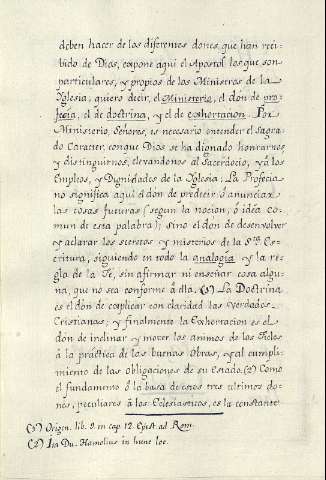 deben hacer de los diferentes dones que han reci-
bido de Dios, expone aquí el Apostol los que son
particulares, y propios de los Ministros de la
Yglesia, quiero decir, el Ministerio, el dón de pro-
fecia, el de doctrina, y el de exhortacion. Por
Ministerio, Señores, es necesario entender el Sagra-
do Caracter, con que Dios se ha dignado honrarnos
y distinguirnos, elevandonos al Sacerdocio, y á los
Empleos, y Dignidades de la Yglesia; La Profecia
no significa aqui el dón de predecir ó anunciar
las cosas futuras (segun la nocion, ó idéa co-
mun de esta palabra); sino el don de desenvolver
y aclarar los secretos y misterios de la Sta. Es-
critura, siguiendo en todo la analogia y la re-
gla de la Fé, sin afirmar ni enseñar cosa algu-
na, que no sea conforme á ella. (1) La Doctrina
es el dón de explicar con claridad las verdades
Cristianas; y finalmente la Exhortacion es el
dón de inclinar y mover los animos de los Fieles
á la práctica de las buenas Obras, y al cumpli-
miento de las obligaciones de su Estado. (2) Como
el fundamento ó la basa de estos tres ultimos do-
nes, peculiares á los Eclesiasticos, es la constante
(1) Origen. lib. 9. in cap. 12. Epist. ad Rom.
(2) Ita Du-Hamelius in hunc loc.